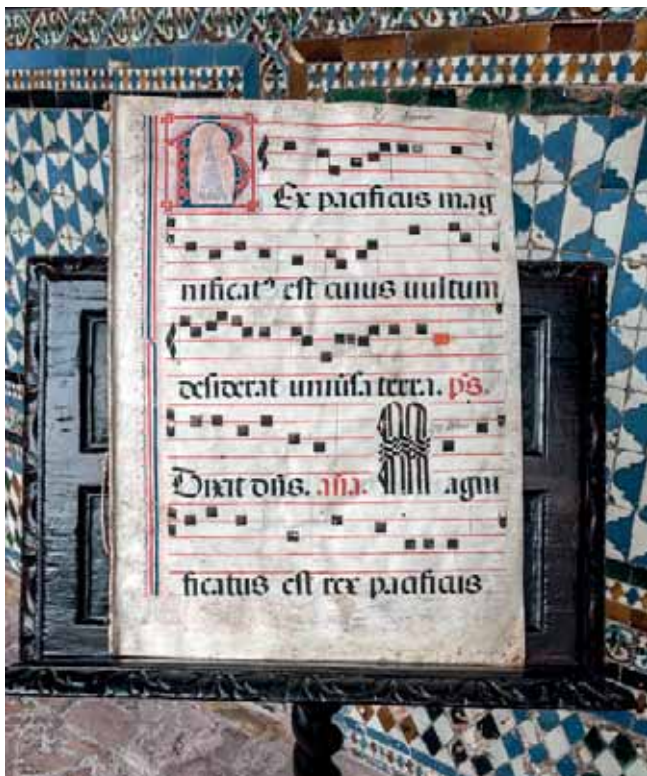 Rex pacificus mag
nificatꝰ est cuius uultum
desiderat uniũsa terra. ps.
Dixit dñs. aña. Magni
ficatus est rex pacificus